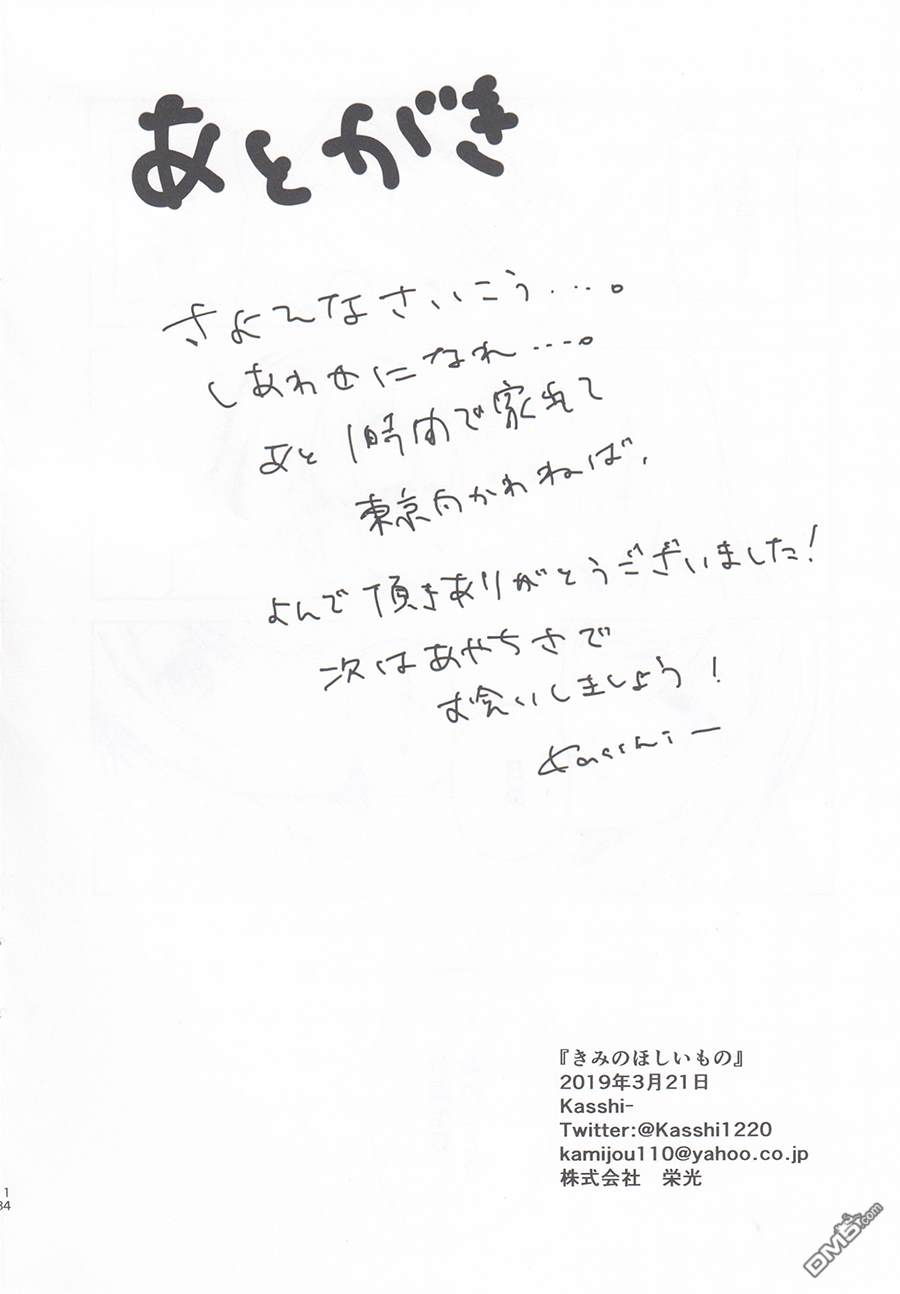 あとがき
さよひなさいこう...。
しあわせになれ...。
あと1時間で家出て
東京向かわねば、
よんで頂きありがとうございました!
次はあやちさで
お会いしましょう!
Kasshi-
『きみのほしいもの』
2019年3月21日
Kasshi-
Twitter:@Kasshi1220
kamijou110@yahoo.co.jp
株式会社 栄光
DM5.com